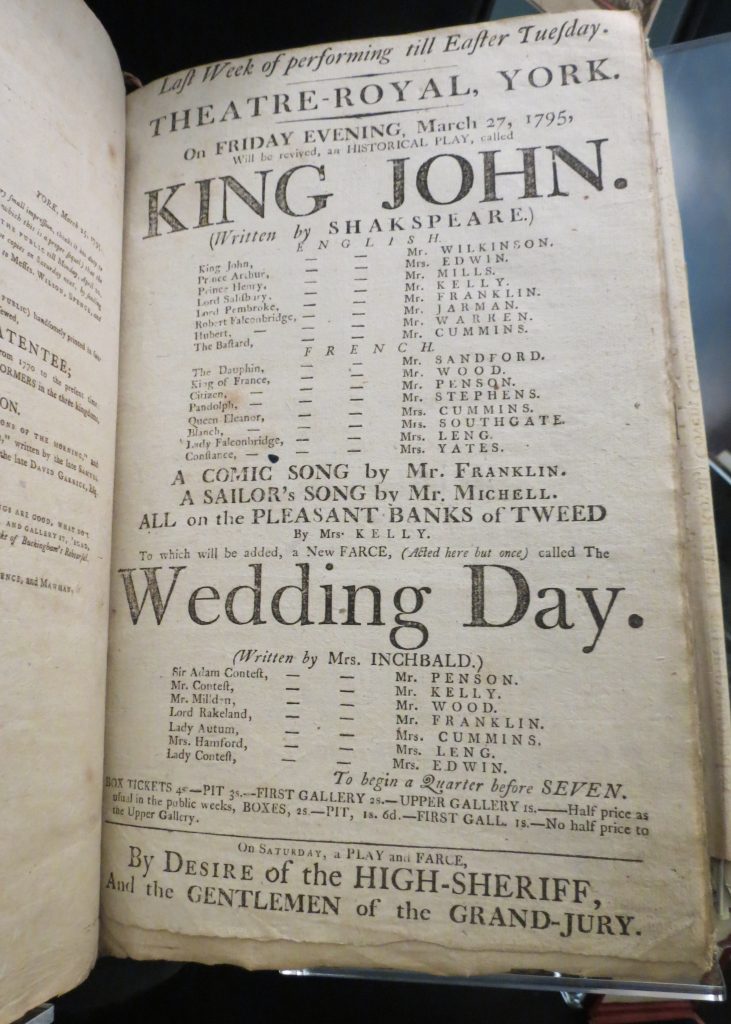 YORK, March 25, 1795.
THE PUBLIC till Monday, April
to Meſſrs. WILSON, SPENCE, and
PUBLIC) handſomely printed in
ATENTEE;
from 1770 to the preſent time,
FORMERS in the three kingdoms,
ON.
OF THE MORNING," and
," written by the late
the late DAVID GARRICK, Eſq.
NGS ARE GOOD, WHAT NOT
AND GALLERY
of Buckingham's Rehearſal.
ENCE, and MAWMAN,
Laſt Week of performing till Eaſter Tueſday.
THEATRE-ROYAL, YORK.
On FRIDAY EVENING, March 27, 1795,
Will be revived, an HISTORICAL PLAY, called
KING JOHN.
(Written by SHAKSPEARE.)
ENGLISH.
King John, — — Mr. WILKINSON.
Prince Arthur, — — Mrs. EDWIN.
Prince Henry, — — Mr. MILLS.
Lord Saliſbury, — — Mr. KELLY.
Lord Pembroke, — — Mr. FRANKLIN.
Robert Falconbridge, — — Mr. JARMAN.
Hubert, — — — Mr. WARREN.
The Baſtard, — — Mr. CUMMINS.
FRENCH.
The Dauphin, — — Mr. SANDFORD.
King of France, — — Mr. WOOD.
Citizen, — — — Mr. PENSON.
Pandolph, — — — Mr. STEPHENS.
Queen Eleanor, — — Mrs. CUMMINS.
Blanch, — — — Mrs. SOUTHGATE.
Lady Falconbridge, — — Mrs. LENG.
Conſtance, — — — Mrs. YATES.
A COMIC SONG by Mr. FRANKLIN.
A SAILOR's SONG by Mr. MICHELL.
ALL on the PLEASANT BANKS of TWEED
By Mrs. KELLY.
To which will be added, a New FARCE, (Acted here but once) called The
Wedding Day.
(Written by Mrs. INCHBALD.)
Sir Adam Conteſt, — — Mr. PENSON.
Mr. Conteſt, — — Mr. KELLY.
Mr. Millden, — — Mr. WOOD.
Lord Rakeland, — — Mr. FRANKLIN.
Lady Autum, — — Mrs. CUMMINS.
Mrs. Hamford, — — Mrs. LENG.
Lady Conteſt, — — Mrs. EDWIN.
To begin a Quarter before SEVEN.
BOX TICKETS 4s.—PIT 3s.—FIRST GALLERY 2s.—UPPER GALLERY 1s.——Half price as
uſual in the public weeks, BOXES, 2s.—PIT, 1s. 6d.—FIRST GALL. 1s.—No half price to
the Upper Gallery.
On SATURDAY, a PLAY and FARCE,
By DESIRE of the HIGH-SHERIFF,
And the GENTLEMEN of the GRAND-JURY.